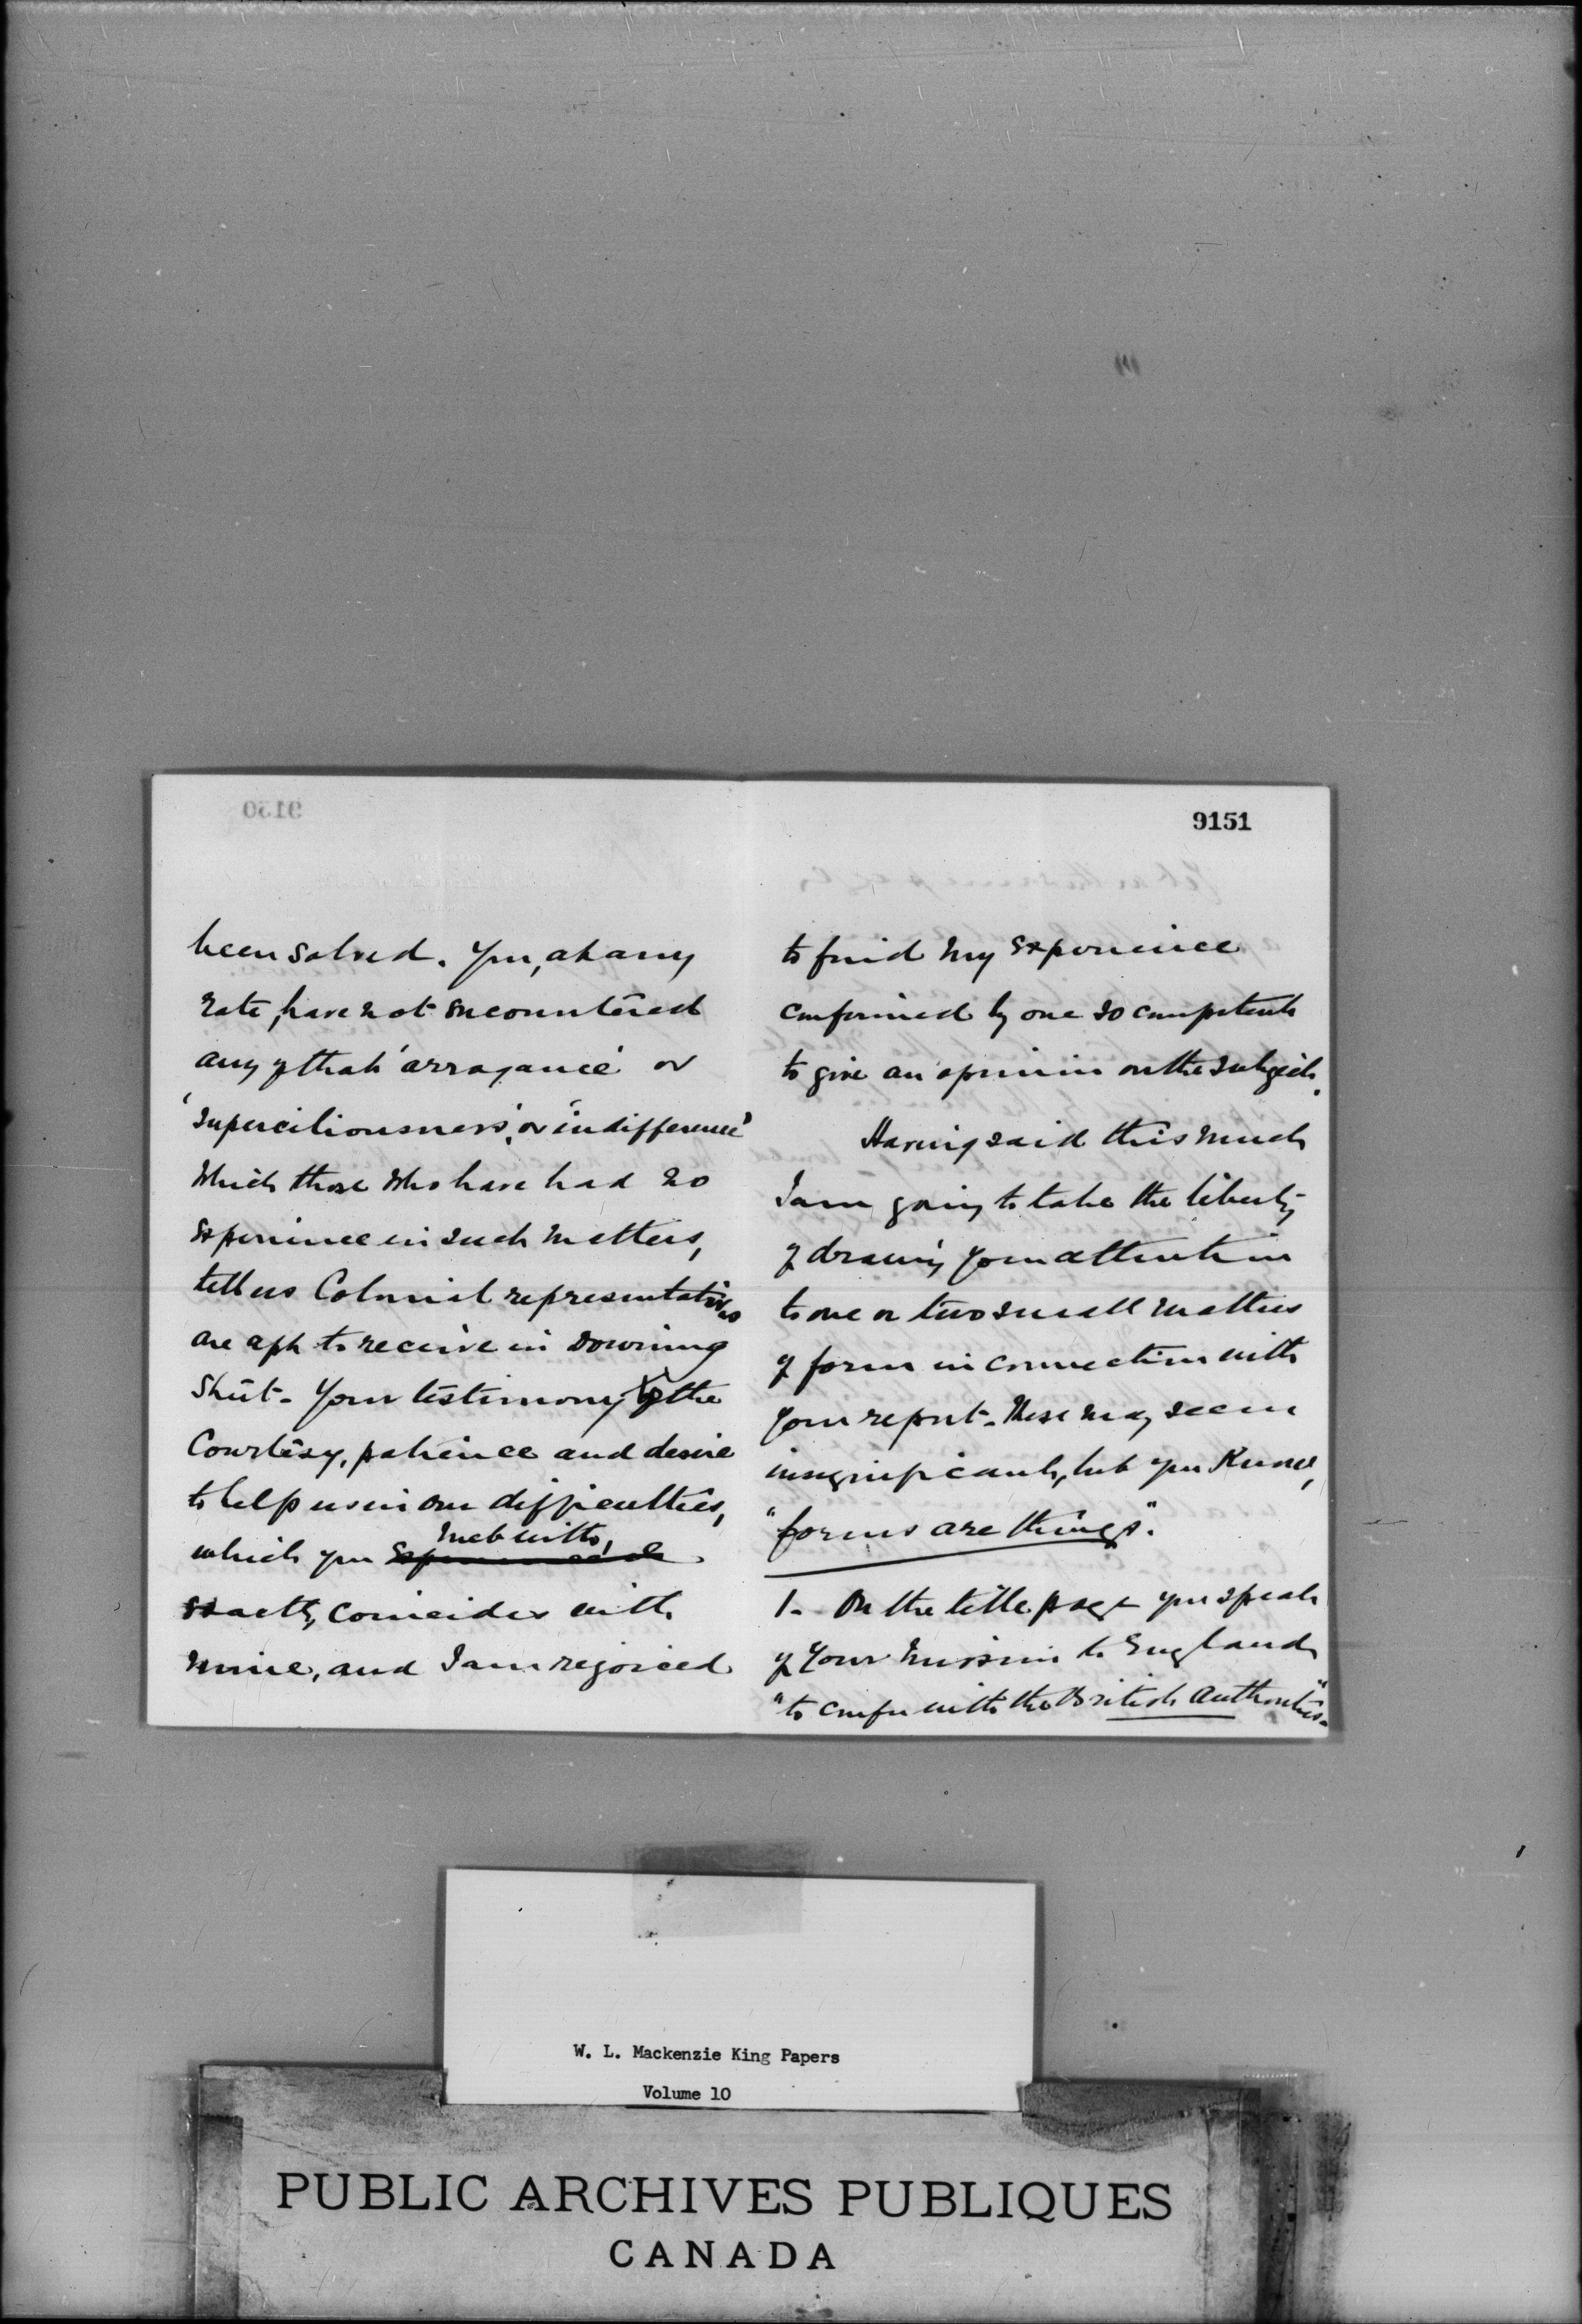 9151
been solved. You, at any
rate, have not encountered
any of that 'arrogance' or
'superciliousness', or 'indifference'
which those who have had no
experience in such matters,
tell us Colonial representatives
are apt to receive in Downing
Street. Your testimony to the
Courtesy, patience and desire
to help us in our difficulties,
met with,
which you experienced
exactly, coincides with
mine, and I am rejoiced
to find my experience
confirmed by one so competent
to give an opinion on the subject.
Having said this much
I am going to take the liberty
of drawing your attention
to one or two small matters
of form in connection with
your report. These may seem
insignificant, but you know,
"forms are things".
1. On the title page you speak
of your mission to England
"to confer with the British Authorities".
W. L. Mackenzie King Papers
Volume 10
PUBLIC ARCHIVES PUBLIQUES
CANADA